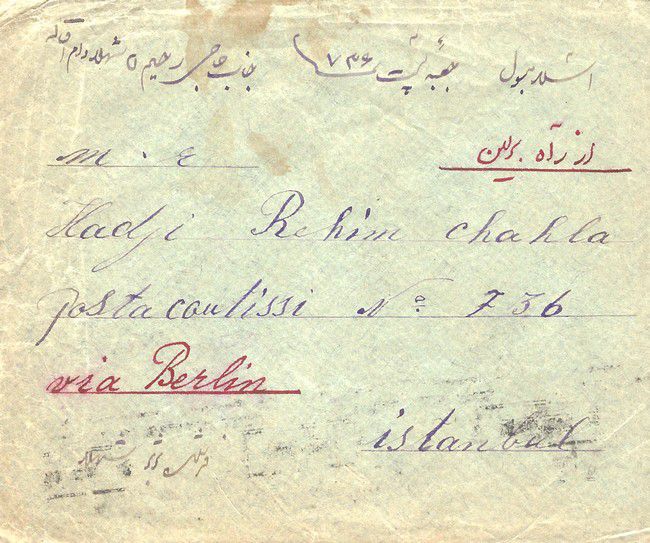 اسلامبول پست ۷۳۶ جناب حاجی رحیم شهلا دام
از راه برلین
m. E
Hadji Rehim chahla
posta coutissi Nº 736
via Berlin
istanbul